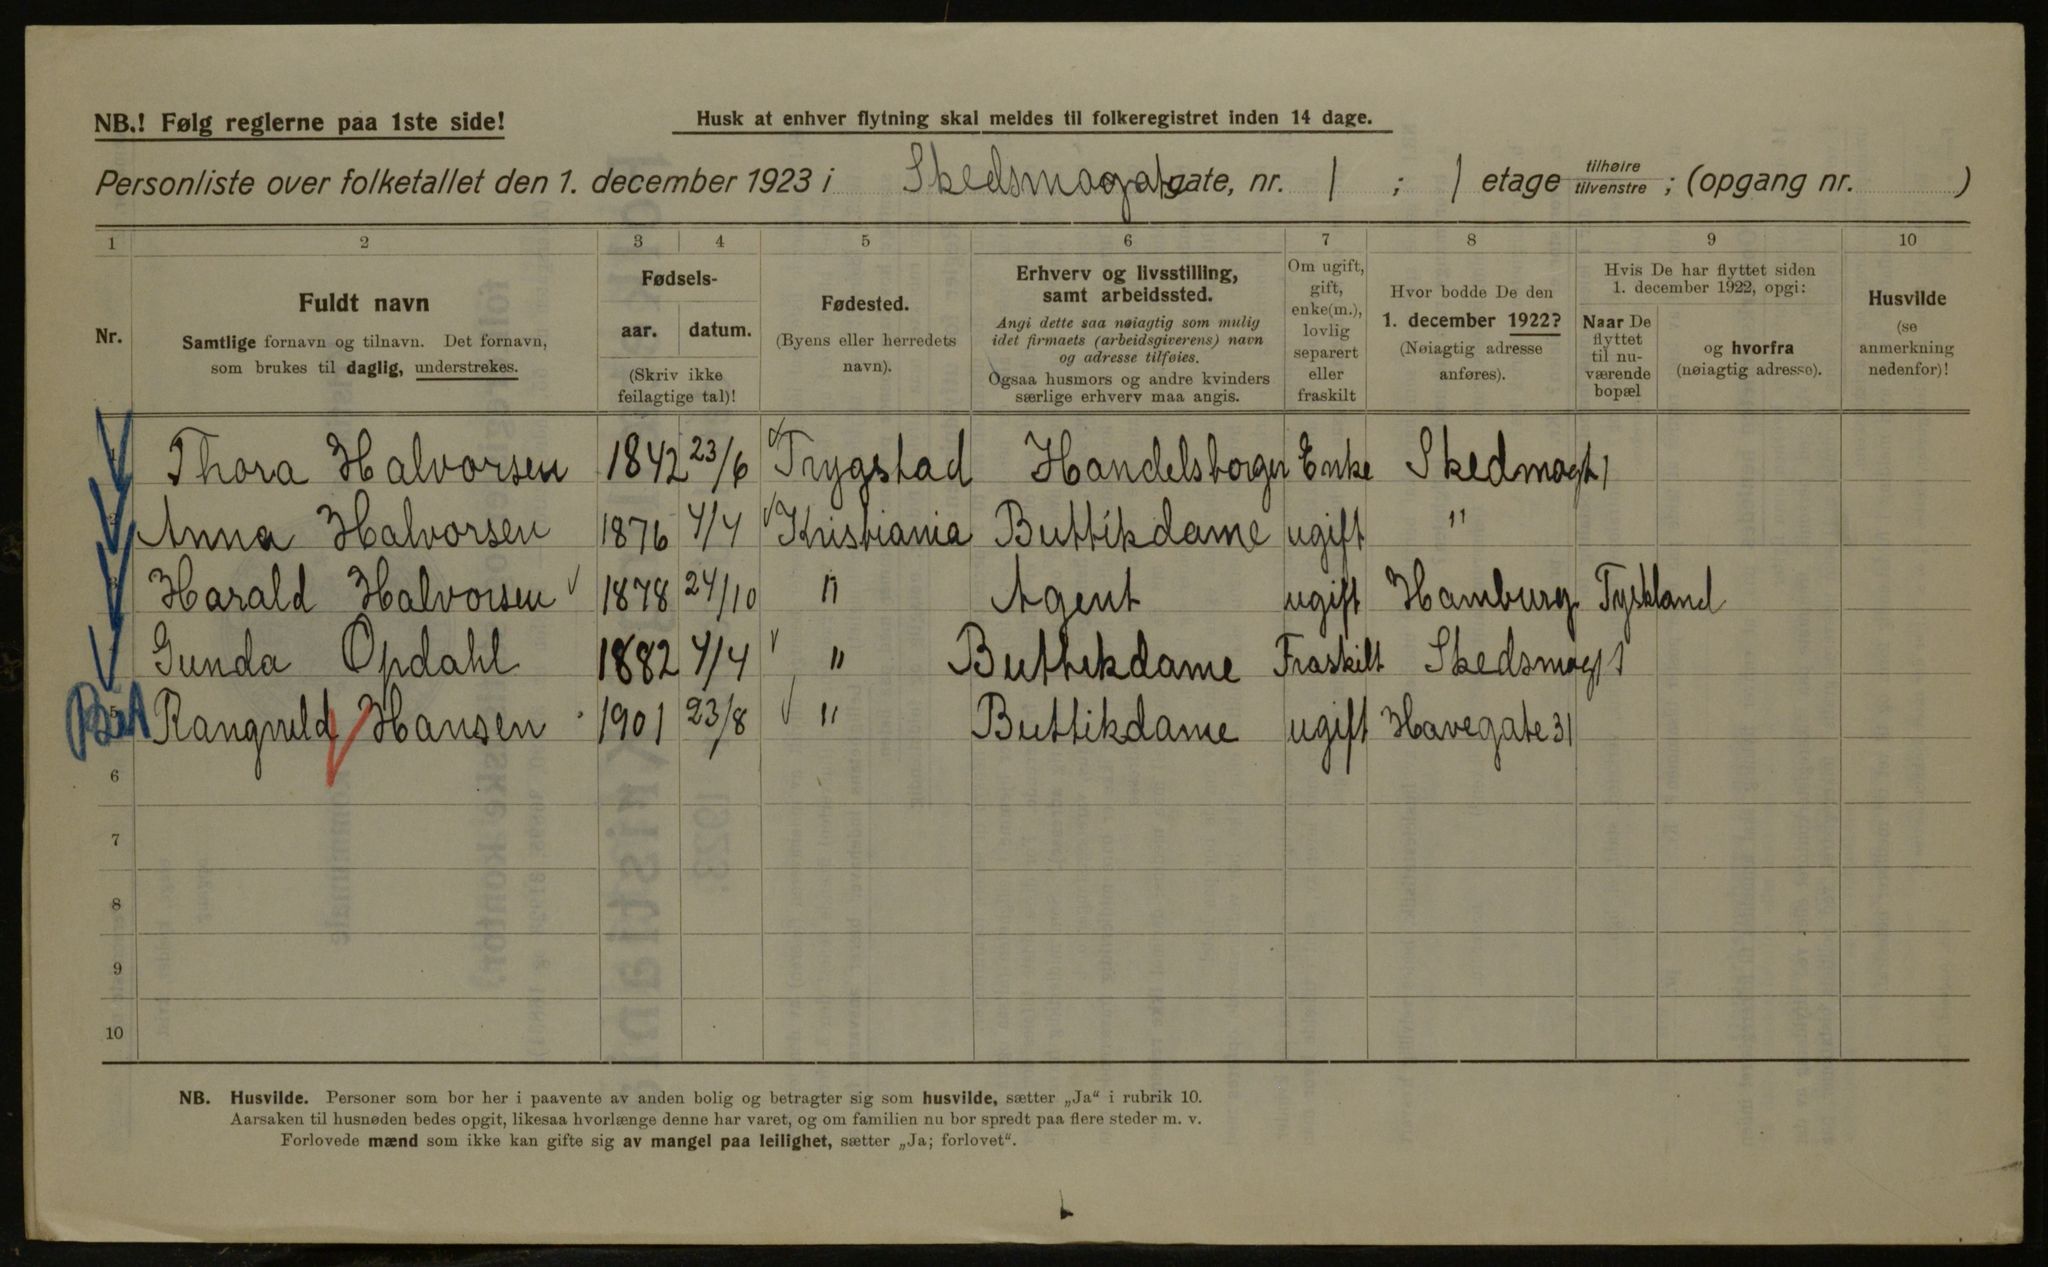 NB.! Følg reglerne paa 1ste side!
Husk at enhver flytning skal meldes til folkeregistret inden 14 dage.
Personliste over folketallet den 1. december 1923 i Skedsmogategate, nr. 1 ; 1 etage tilhøire tilvenstre ; (opgang nr. )
1 2 3 4 5 6 7 8 9 10
Nr.
Fuldt navn
Samtlige fornavn og tilnavn. Det fornavn,
som brukes til daglig, understrekes.
Fødsels-
aar. datum.
(Skriv ikke
feilagtige tal)!
Fødested.
(Byens eller herredets
navn).
Erhverv og livsstilling,
samt arbeidssted.
Angi dette saa nøiagtig som mulig
idet firmaets (arbeidsgiverens) navn
og adresse tilføies.
Ogsaa husmors og andre kvinders
særlige erhverv maa angis.
Om ugift,
gift,
enke(m.),
lovlig
separert
eller
fraskilt
Hvor bodde De den
1. december 1922?
(Nøiagtig adresse
anføres).
Hvis De har flyttet siden
1. december 1922, opgi:
Naar De
flyttet
til nu-
værende
bopæl
og hvorfra
(nøiagtig adresse).
Husvilde
(se
anmerkning
nedenfor)!
Thora Halvorsen 1842 23/6 Trygstad Handelsborger Enke Skedmogt 1
Anna Halvorsen 1876 4/4 Kristiania Buttikdame ugift "
Harald Halvorsen 1878 24/10 " Agent ugift Hamburg Tyskland
Gunda Opdahl 1882 4/4 " Buttikdame Fraskilt Skedsmogt 1
5 Rangvild Hansen 1901 23/8 " Buttikdame ugift Havegate 31
6
7
8
9
10
NB. Husvilde. Personer som bor her i paavente av anden bolig og betragter sig som husvilde, sætter „Ja“ i rubrik 10.
Aarsaken til husnøden bedes opgit, likesaa hvorlænge denne har varet, og om familien nu bor spredt paa flere steder m. v.
Forlovede mænd som ikke kan gifte sig av mangel paa leilighet, sætter „Ja; forlovet“.